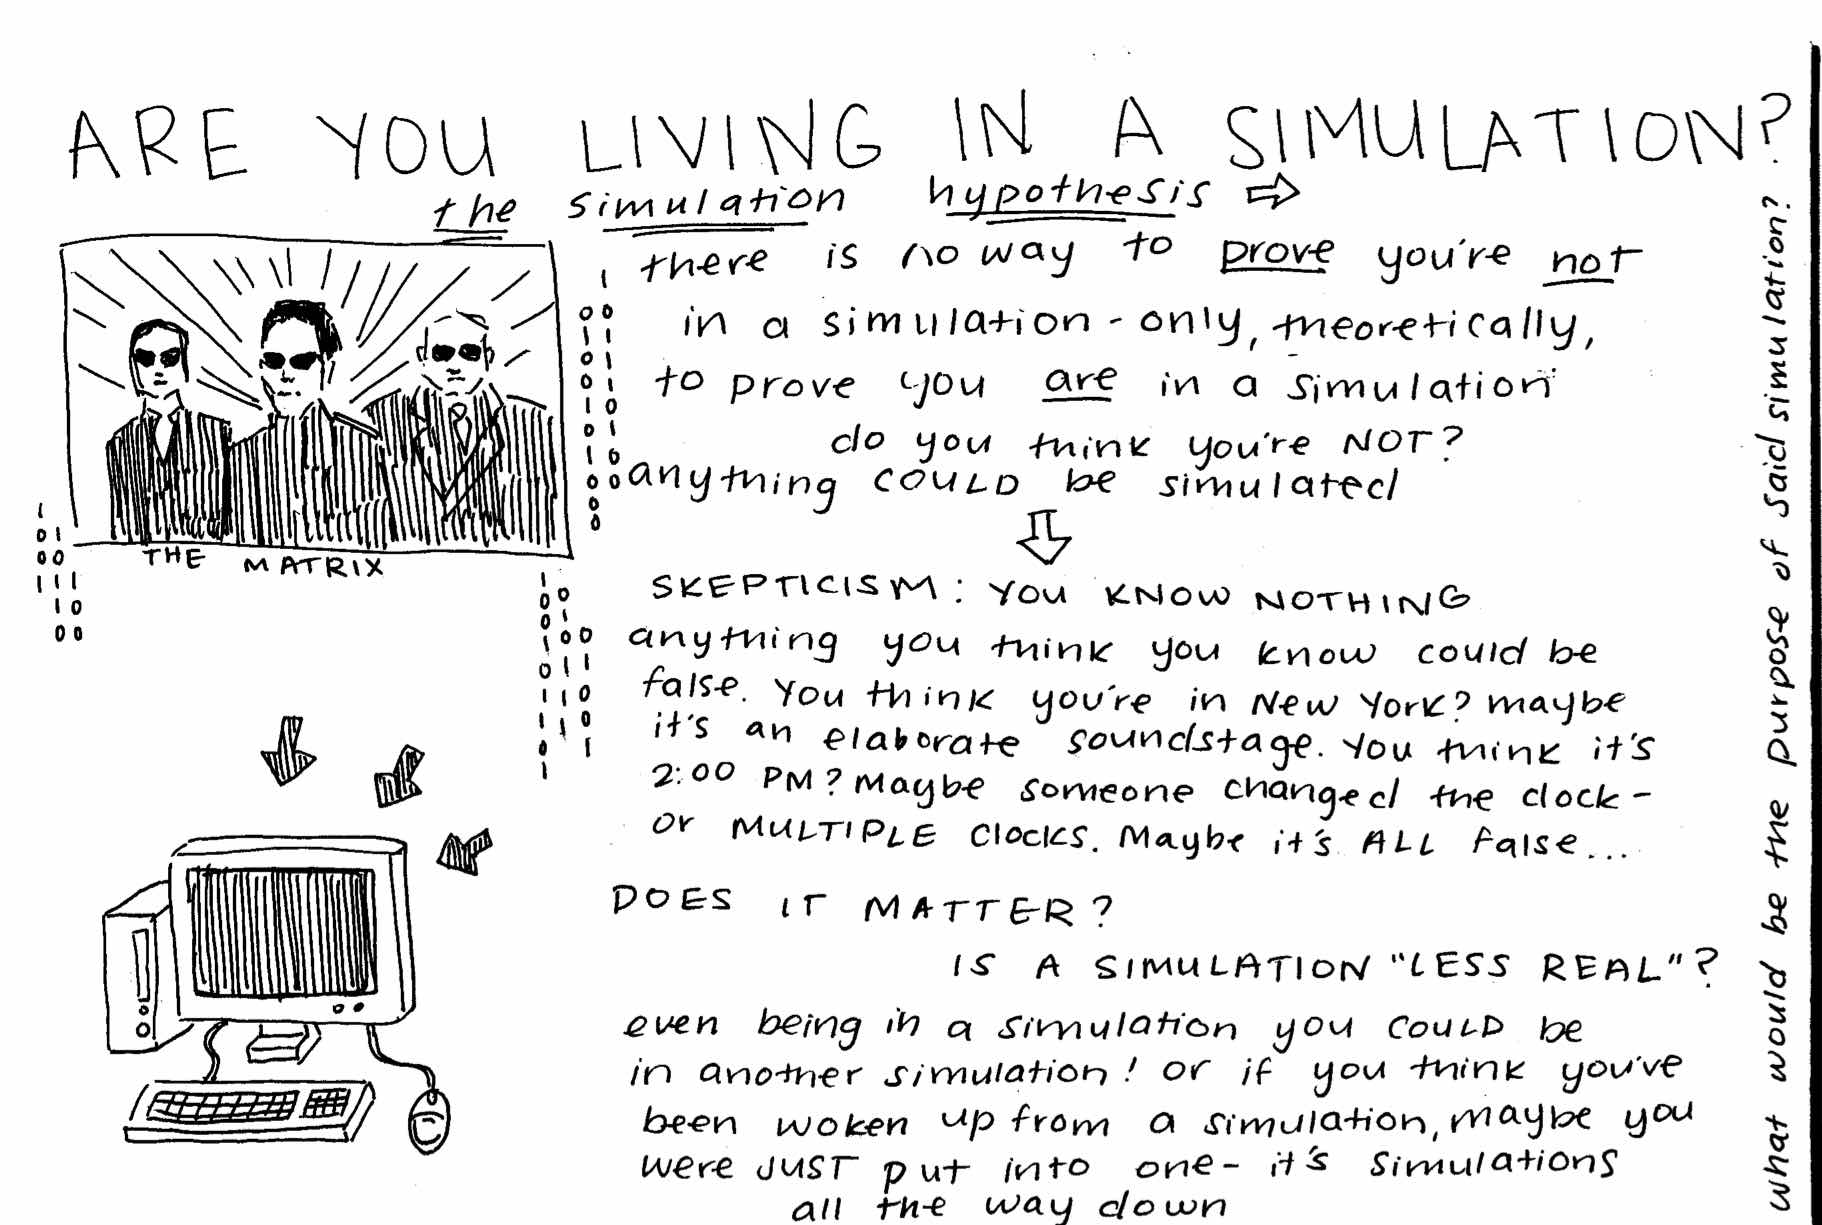 ARE YOU LIVING IN A SIMULATION?
the simulation hypothesis ⇨
there is no way to prove you're not
in a simulation - only, theoretically,
to prove you are in a simulation
do you think you're NOT?
anything COULD be simulated
THE MATRIX
SKEPTICISM: YOU KNOW NOTHING
anything you think you know could be
false. You think you're in New York? maybe
it's an elaborate soundstage. You think it's
2:00 PM? Maybe someone changed the clock -
or MULTIPLE clocks. Maybe it's ALL false...
DOES IT MATTER?
IS A SIMULATION "LESS REAL"?
even being in a simulation you COULD be
in another simulation! or if you think you've
been woken up from a simulation, maybe you
were JUST put into one - it's simulations
all the way down
what would be the purpose of said simulation?